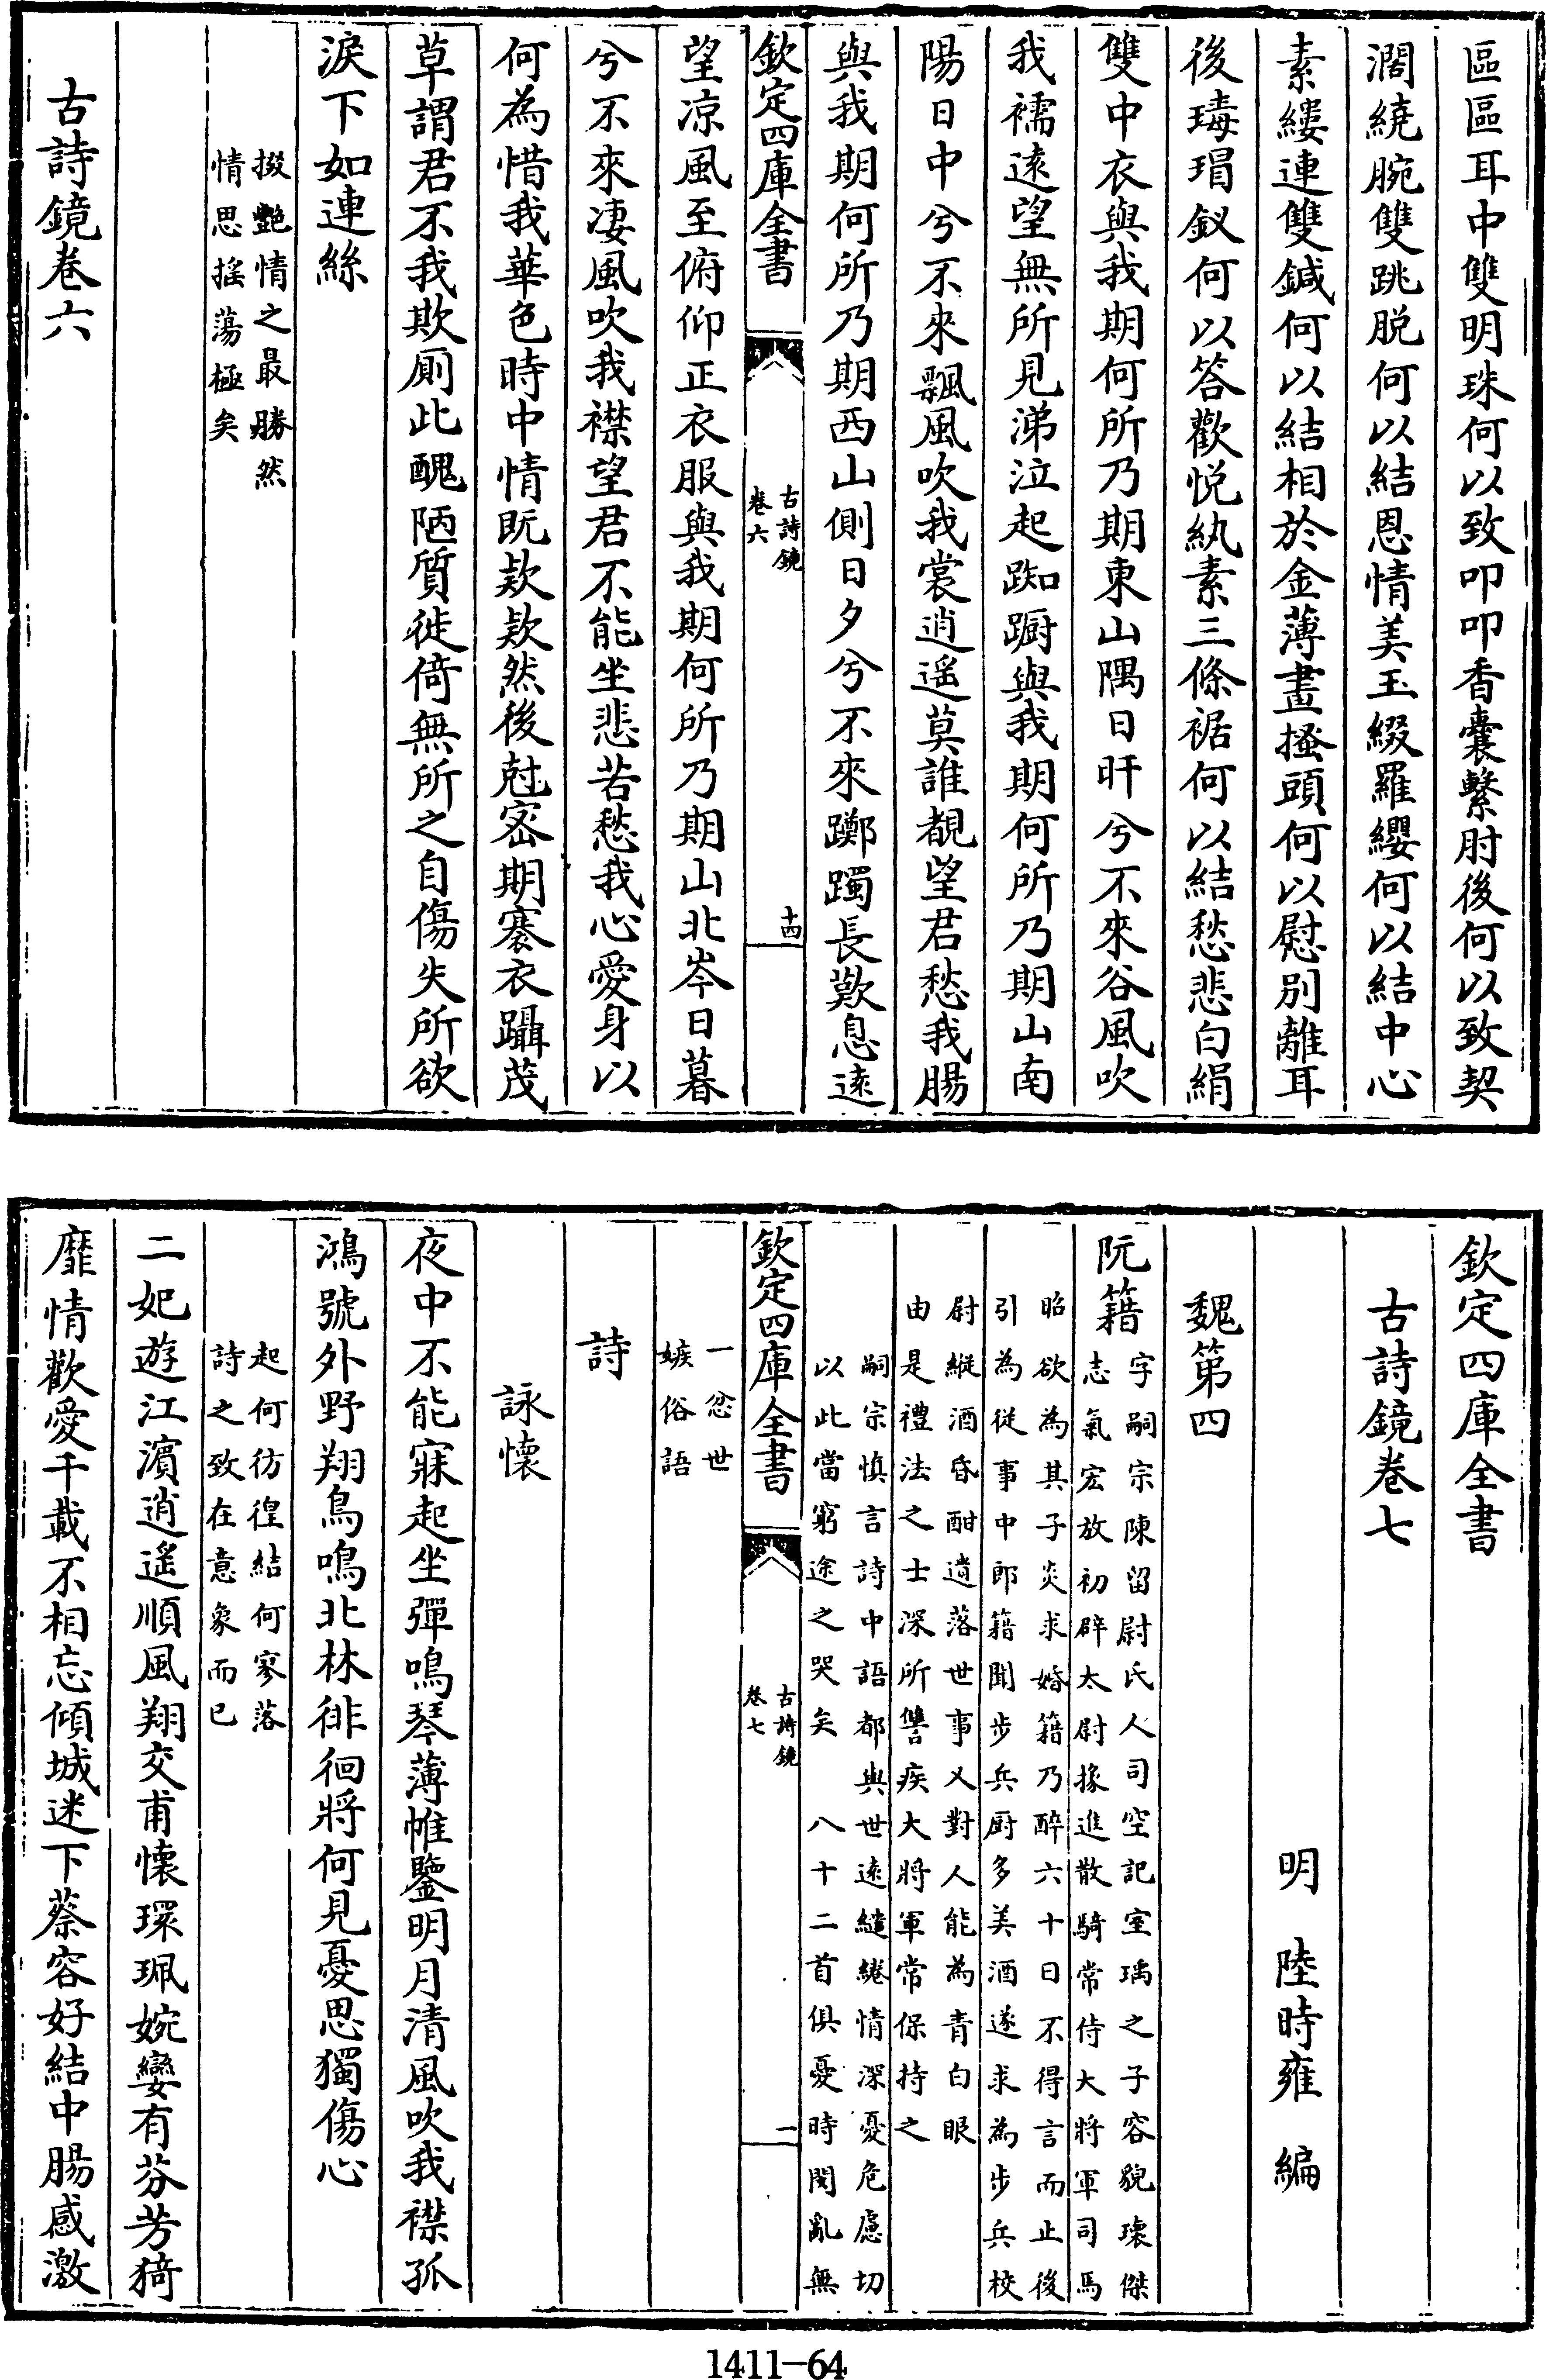 區區耳中雙明珠何以致叩叩香囊繫肘後何以致契
濶繞腕雙跳脱何以結恩情美玉綴羅纓何以結中心
素縷連雙鍼何以結相於金薄畫搔頭何以慰别離耳
後瑇瑁釵何以答歡悦紈素三條裾何以結愁悲白絹
雙中衣與我期何所乃期東山隅日旰兮不來谷風吹
我襦逺望無所見涕泣起踟蹰與我期何所乃期山南
陽日中兮不來飄風吹我裳逍遥莫誰覩望君愁我腸
與我期何所乃期西山側日夕兮不來躑躅長歎息逺
欽定四庫全書
古詩鏡
卷六
十四
望凉風至俯仰正衣服與我期何所乃期山北岑日暮
兮不來凄風吹我襟望君不能坐悲若愁我心愛身以
何為惜我華色時中情既欵欵然後尅宻期褰衣躡茂
草謂君不我欺厠此醜陋質徙倚無所之自傷失所欲
淚下如連絲
掇艷情之最勝然
情思摇蕩極矣
古詩鏡卷六
欽定四庫全書
古詩鏡卷七
明 陸時雍 編
魏第四
阮籍
字嗣宗陳留尉氏人司空記室瑀之子容貌瓌傑
志氣宏放初辟太尉掾進散騎常侍大將軍司馬
昭欲為其子炎求婚籍乃醉六十日不得言而止後
引為從事中郎籍聞步兵厨多美酒遂求為步兵校
尉縱酒昏酣遺落世事又對人能為青白眼
由是禮法之士深所讐疾大將軍常保持之
嗣宗慎言詩中語都與世逺繾綣情深憂危慮切
以此當窮途之哭矣 八十二首俱憂時閔亂無
欽定四庫全書
古詩鏡
卷七
一
一忿世
嫉俗語
詩
詠懷
夜中不能寐起坐彈鳴琴薄帷鑒明月清風吹我襟孤
鴻號外野翔鳥鳴北林徘徊將何見憂思獨傷心
起何彷徨結何寥落
詩之致在意象而已
二妃遊江濱逍遙順風翔交甫懷環珮婉孌有芬芳猗
靡情歡愛千載不相忘傾城迷下蔡容好結中腸感激
1411-64